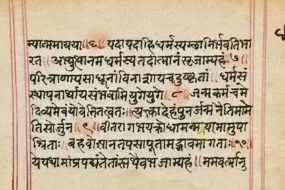 म्यात्ममायया ॥६॥ यदा यदा हि धर्मस्य ग्लानिर्भवति भा
रत ॥ अभ्युत्थानमधर्मस्य तदात्मानं सृजाम्यहं ॥७॥
परित्राणाय साधूनां विनाशाय च दुष्कृतां ॥ धर्मसं
स्थापनार्थाय संभवामि युगे युगे ॥८॥ जन्म कर्म च मे
दिव्यमेवं यो वेत्ति तत्वतः ॥ त्यक्त्वा देहं पुनर्जन्म नैति मामे
ति सोर्जुन ॥९॥ वीतरागभयक्रोधा मन्मया मामुपा
श्रिताः ॥ बहवो ज्ञानतपसा पूता मद्भावमागताः ॥१०॥
ये यथा मां प्रपद्यंते तांस्तथैव भजाम्यहं ॥ मम वर्त्मानु